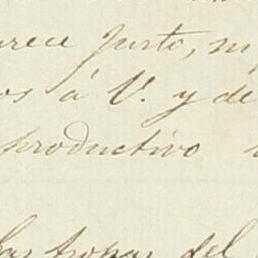 arece justo, m
os á V. y de
productivo
las tropas del